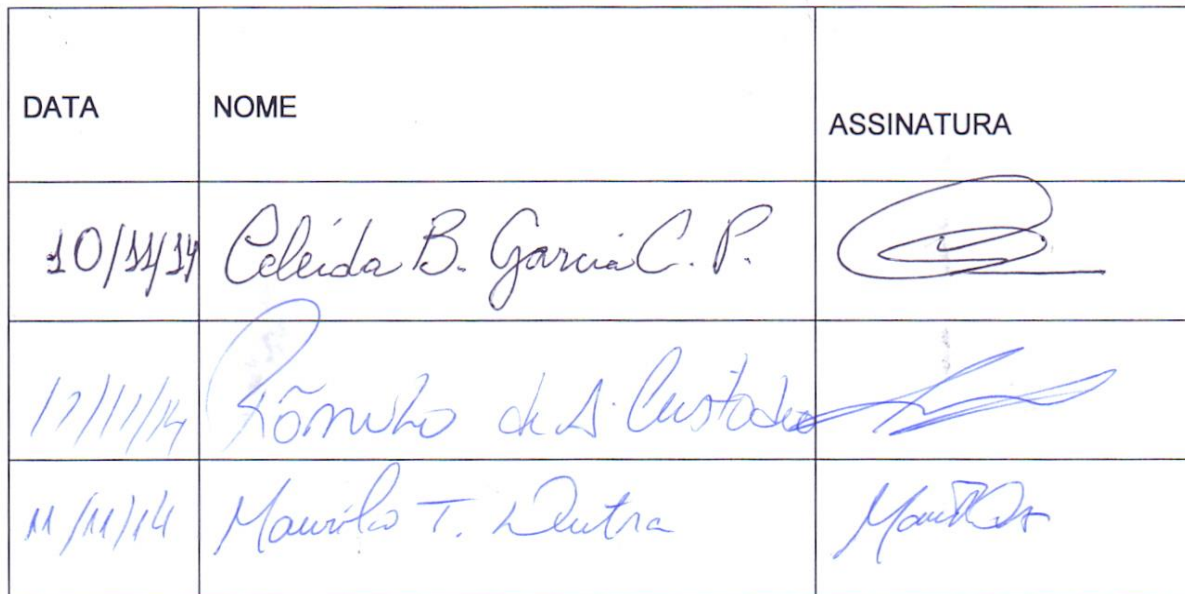 DATA NOME ASSINATURA
10/11/14 Celeida B. Garcia C. P.
11/11/14 Rômulo de A. Custodio
11/11/14 Maurilio T. Dutra